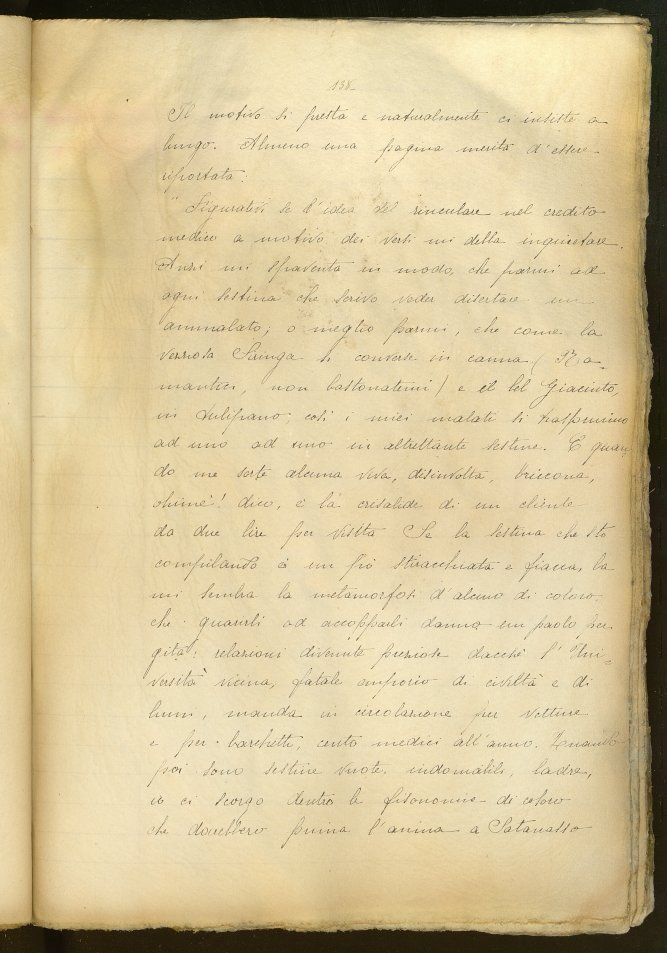 138
Il motivo si presta e naturalmente ci insiste a
lungo. Almeno una pagina merita d'essere
riportata:
"Figuratevi se l'idea del rinculare nel credito
medico a motivo dei versi mi debba inquietare.
Anzi mi spaventa in modo, che parmi ad
ogni sestina che scrivo veder disertare un
ammalato; o meglio parmi, che come la
vezzosa Siringa si converse in canna (Ro
mantici, non bastonatemi) e il bel Giacinto,
in tulipano; così i miei malati si trasformino
ad uno ad uno in altrettante sestine. E quan-
do me sorte alcuna viva, disinvolta, briccona,
ohimè! dico, è la crisalide di un cliente
da due lire per visita. Se la sestina che sto
compilando è un po' stiracchiata e fiacca, la
mi sembra la metamorfosi d'alcuno di coloro,
che guarirli od accopparli danno un paolo per
gita: relazioni divenute preziose dacchè l'Uni-
versità vicina, fatale emporio di civiltà e di
lumi, manda in circolazione per vetture
e per barchetti, cento medici all'anno. Quando
poi sono sestine vuote, indomabili, ladre,
io ci scorgo dentro le fisonomie di coloro
che darebbero prima l'anima a Satanasso